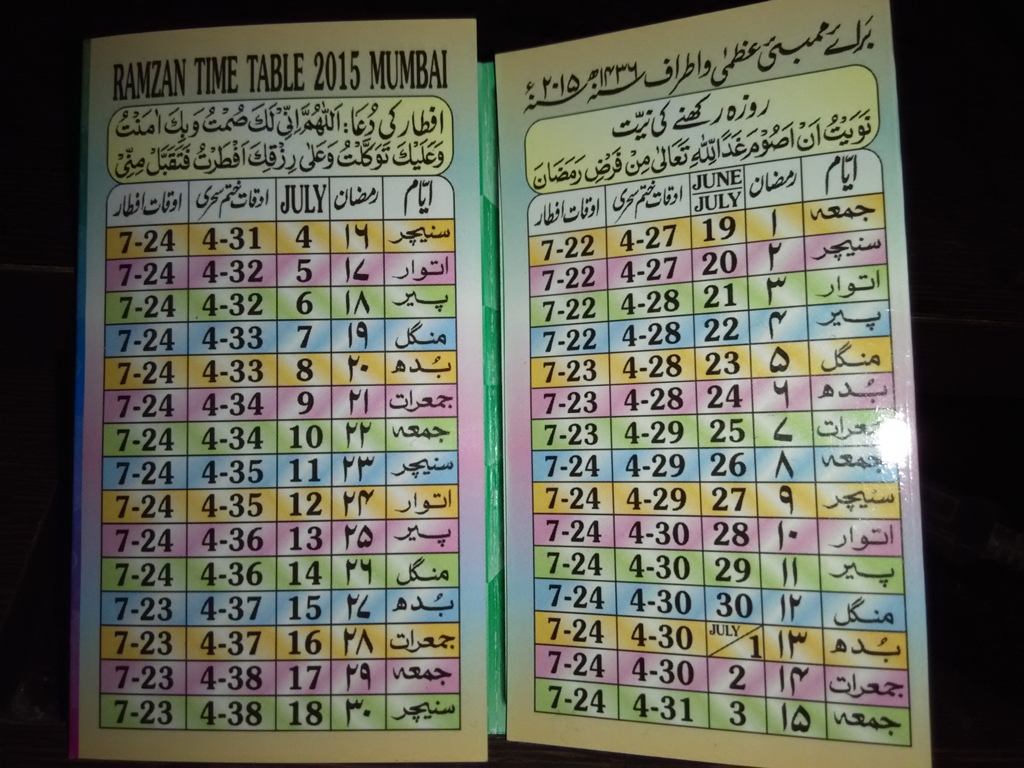 برائے ممبئی عظمٰی و اطراف ۱۴۳۶ھ سنہ ۲۰۱۵ء سنہ
روزہ رکھنے کی نیّت
نَوَیْتُ اَنْ اَصُوْمَ غَدًا لِلّٰہِ تَعَالٰی مِنْ فَرْضِ رَمَضَانَ
ایّام رمضان JUNE JULY اوقات ختم سحری اوقات افطار
جمعہ ۱ 19 4-27 7-22
سنیچر ۲ 20 4-27 7-22
اتوار ۳ 21 4-28 7-22
پیر ۴ 22 4-28 7-22
منگل ۵ 23 4-28 7-23
بُدھ ۶ 24 4-28 7-23
جمعرات ۷ 25 4-29 7-23
جمعہ ۸ 26 4-29 7-24
سنیچر ۹ 27 4-29 7-24
اتوار ۱۰ 28 4-30 7-24
پیر ۱۱ 29 4-30 7-24
منگل ۱۲ 30 4-30 7-24
بُدھ ۱۳ JULY/1 4-30 7-24
جمعرات ۱۴ 2 4-30 7-24
جمعہ ۱۵ 3 4-31 7-24
RAMZAN TIME TABLE 2015 MUMBAI
افطار کی دُعا: اَللّٰهُمَّ اِنِّیْ لَكَ صُمْتُ وَ بِكَ اٰمَنْتُ
وَعَلَیْكَ تَوَکَّلْتُ وَعَلٰی رِزْقِكَ اَفْطَرْتُ فَتَقَبَّلْ مِنِّیْ
ایّام رمضان JULY اوقات ختم سحری اوقات افطار
سنیچر ۱۶ 4 4-31 7-24
اتوار ۱۷ 5 4-32 7-24
پیر ۱۸ 6 4-32 7-24
منگل ۱۹ 7 4-33 7-24
بُدھ ۲۰ 8 4-33 7-24
جمعرات ۲۱ 9 4-34 7-24
جمعہ ۲۲ 10 4-34 7-24
سنیچر ۲۳ 11 4-35 7-24
اتوار ۲۴ 12 4-35 7-24
پیر ۲۵ 13 4-36 7-24
منگل ۲۶ 14 4-36 7-24
بُدھ ۲۷ 15 4-37 7-23
جمعرات ۲۸ 16 4-37 7-23
جمعہ ۲۹ 17 4-38 7-23
سنیچر ۳۰ 18 4-38 7-23